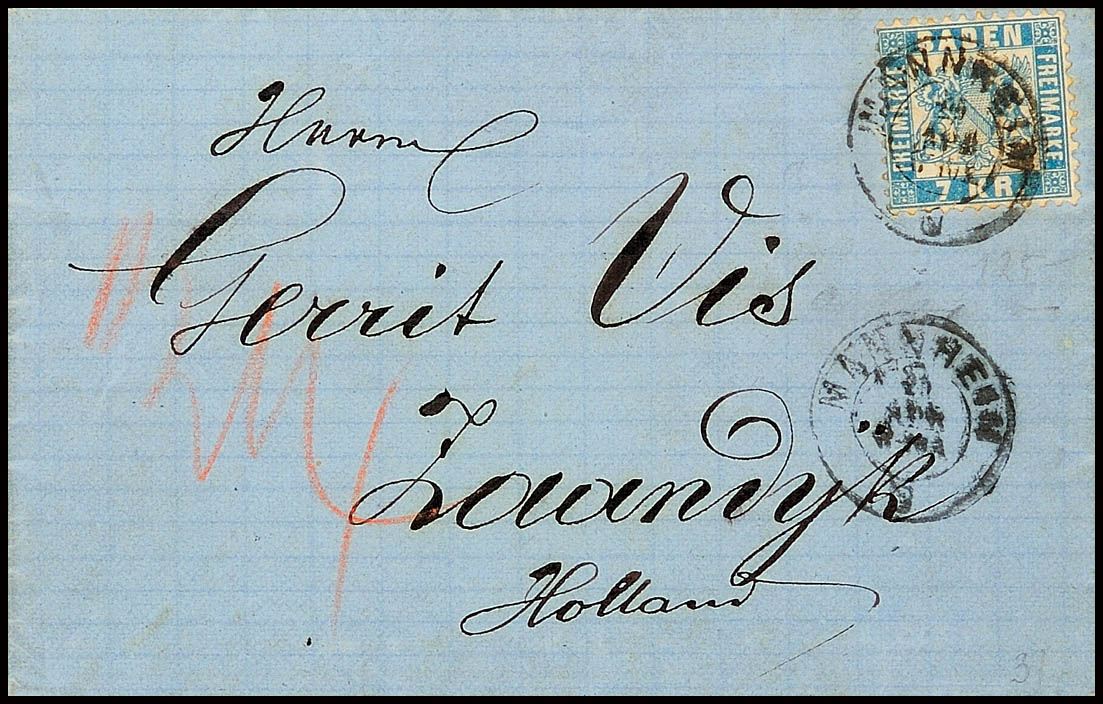 BADEN
FREIMARKE
FREIMARKE
7 KR.
MANNHEIM
Herrn
Gerrit Vis
MANNHEIM
Zaandÿk
Holland
125-